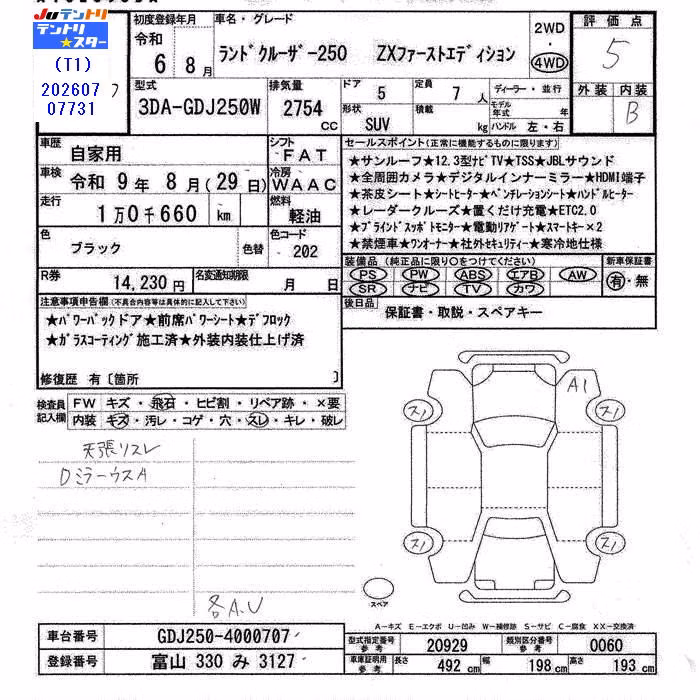 JUテントリ
テントリ★スター
(T1)
202607
07731
初度登録年月
令和
6 8月
車名・グレード
ランドクルーザー250 ZXファーストエディション
2WD
4WD
評価点
5
外装 内装
B
型式
3DA-GDJ250W
排気量
2754 CC
ドア 5
形状 SUV
定員 7人
積載 kg
ディーラー・並行
モデル年式 年
ハンドル 左・右
車歴 自家用
シフト FAT
車検 令和 9年 8月(29日)
冷房 WAAC
走行 1万0千660 km
燃料 軽油
色 ブラック 色替
色コード 202
R券 14,230円
名変通知期限 月 日
セールスポイント(正常に機能するものに限ります)
★サンルーフ★12.3型ナビTV★TSS★JBLサウンド
★全周囲カメラ★デジタルインナーミラー★HDMI端子
★茶皮シート★シートヒーター★ベンチレーションシート★ハンドルヒーター
★レーダークルーズ★置くだけ充電★ETC2.0
★ブラインドスポットモニター★電動リアゲート★スマートキー×2
★禁煙車★ワンオーナー★社外セキュリティー★寒冷地仕様
装備品(純正品に限り○をつけてください)
PS PW ABS エアB AW
SR ナビ TV カワ
新車保証書
有・無
後日品
保証書・取説・スペアキー
注意事項申告欄(不具合内容等は具体的に記入して下さい)
★パワーバックドア★前席パワーシート★デフロック
★ガラスコーティング施工済★外装内装仕上げ済
修復歴 有〔箇所 〕
検査員記入欄
FW キズ・飛石・ヒビ割・リペア跡・×要
内装 キズ・汚レ・コゲ・穴・スレ・キレ・破レ
天張リスレ
DミラーウスA
各A.U
A1
ス1
ス1
ス1
ス1
スペア
A-キズ E-エクボ U-凹み W-補修跡 S-サビ C-腐食 XX-交換済
車台番号 GDJ250-4000707
登録番号 富山 330 み 3127
型式指定番号 参考 20929
類別区分番号 参考 0060
車庫証明用 参考 長さ 492cm 幅 198cm 高さ 193cm